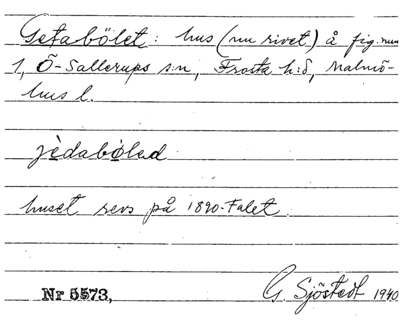 Getabölet: hus (nu rivet) å fig. num
1, Ö-Sallerups s:n, Frosta h:d, Malmö-
hus l.
jèdabøled
huset revs på 1890-talet.
Nr 5573,
G. Sjöstedt 1940